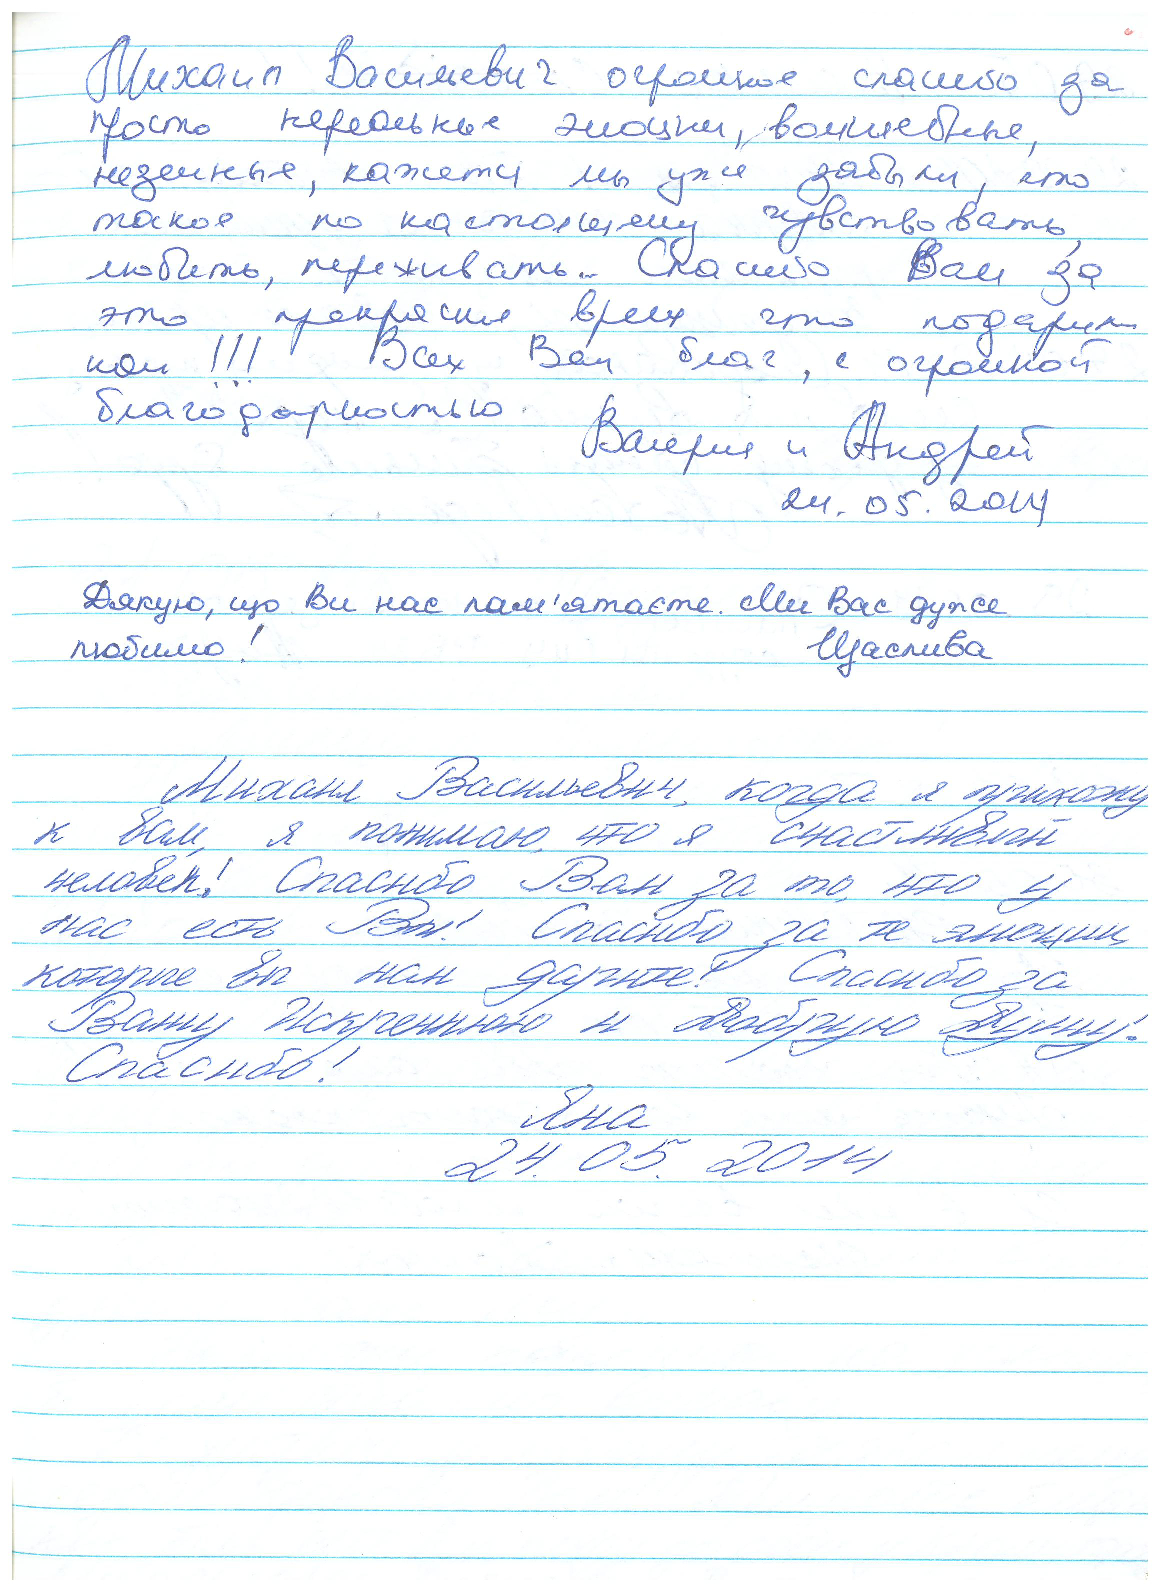 Михаил Васильевич огромное спасибо за
просто нереальные эмоции, волшебные,
неземные, кажется мы уже забыли, что
такое по настоящему чувствовать,
любить, переживать.. Спасибо Вам за
это прекрасное время что подарили
нам!!! Всех Вам благ, с огромной
благодарностью
Валерия и Андрей
24.05.2014
Дякую, що Ви нас пам'ятаєте. Ми Вас дуже
любимо!
Щаслива
Михаил Васильевич, когда я прихожу
к Вам, я понимаю, что я счастливый
человек! Спасибо Вам за то, что у
нас есть Вы! Спасибо за те эмоции,
которые вы нам дарите! Спасибо за
Вашу Искреннюю и Добрую Душу!
Спасибо!
Яна
24.05.2014